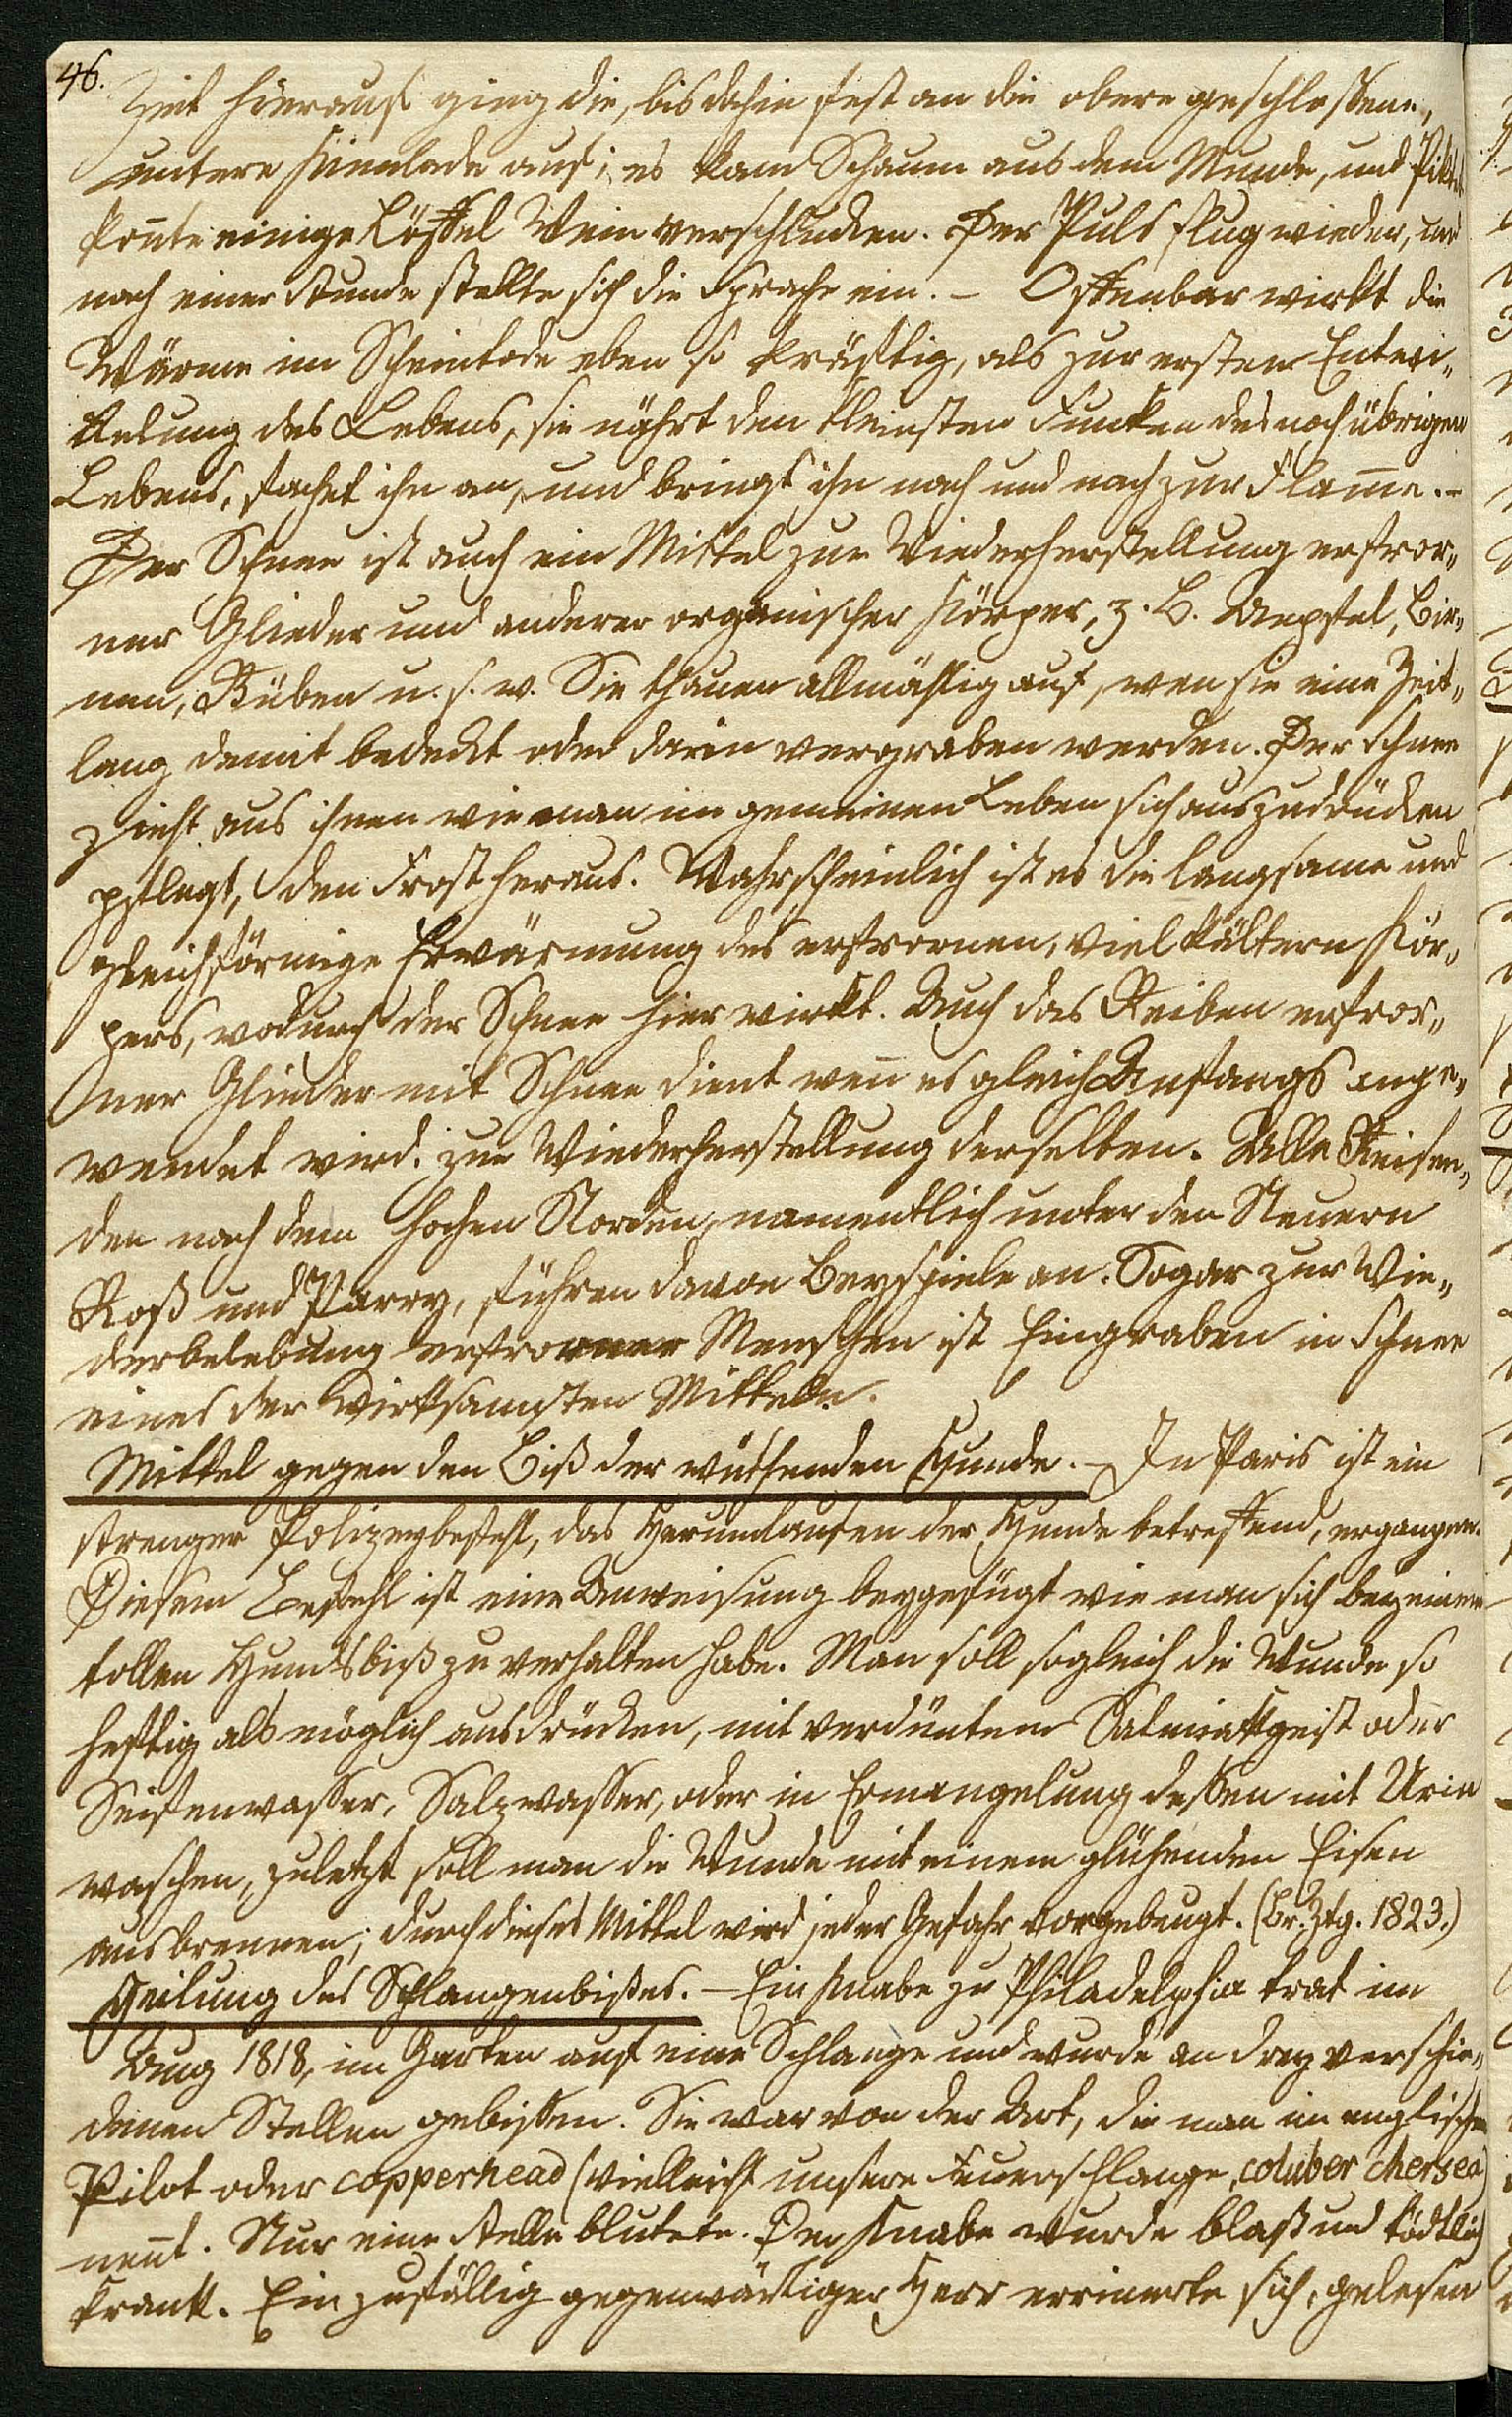 46.
Zeit hierauf ging die, bis dahin fest an die obere geschlossene,
untere Kinnlade auf; es kam Schaum aus dem Munde, und
konnte einige Löffel Wein verschlucken. Der Puls flug wieder, und
nach einer Stunde stellte sich die Sprache ein. – Offenbar wirkt die
Wärme im Scheintode eben so kräftig, als zur ersten Entwi„
kelung des Lebens, sie nährt den kleinsten Funken des noch übrigen
Lebens, fachet ihn an, und bringt ihn nach und nach zur Flam̅e. –
Der Schnee ist auch ein Mittel zur Wiederherstellung erfror„
ner Glieder und anderer organischer Körper, z. B. Aepfel, Bir„
nen, Rüben u. s. w. Sie thauen allmählig auf, wen sie eine Zeit„
lang damit bedeckt oder darin vergraben werden. Der Schnee
zieht aus ihnen wie man im gemeinen Leben sich auszudrücken
pflegt, den Frost heraus. Wahrscheinlich ist es die langsame und
gleichförmige Erwärmung des erfrornen, viel kältern Kör„
pers, wodurch der Schnee hier wirkt. Auch das Reiben erfror„
ner Glieder mit Schnee dient wen̅ es gleich Anfangs ange„
wendet wird, zur Wiederherstellung derselben. Alle Reisen„
den nach dem hohen Norden, namentlich unter den Neuern
Roß und Parry, führen davon Beyspiele an. Sogar zur Wie„
derbelebung erfrorner Menschen ist Eingraben in Schnee
eines der wirksamsten Mitteln.
Mittel gegen den Biß der wüthenden Hunde. – In Paris ist ein
strenger Polizeybefehl, das Herumlaufen der Hunde betreffend, ergangen.
Diesem Befehl ist eine Anweisung beygefügt wie man sich bey einem
tollen Hundsbiß zu verhalten habe. Man soll sogleich die Wunde so
heftig als möglich ausdrücken, mit verdün̅tem Salmiakgeist oder
Seifenwasser, Salzwasser, oder in Ermangelung dessen mit Urin
waschen, zuletzt soll man die Wunde mit einem glühenden Eisen
ausbrennen; durch dieses Mittel wird jeder Gefahr vorgebeugt. (Br. Ztg. 1823.)
Heilung des Schlangenbißes. – Ein Knabe zu Philadelphia trat im
Aug 1818, im Garten auf eine Schlange und wurde an drey verschie„
denen Stellen gebissen. Sie war von der Art, die man im englischen
Pilot oder copperhead (vielleicht unsere Feuerschlange, coluber chersea)
nen̅t. Nur eine Stelle blutete. Der Knabe wurde blaß und tödtlich
krank. Ein zufällig gegenwärtiger Herr errinerte sich, gelesen